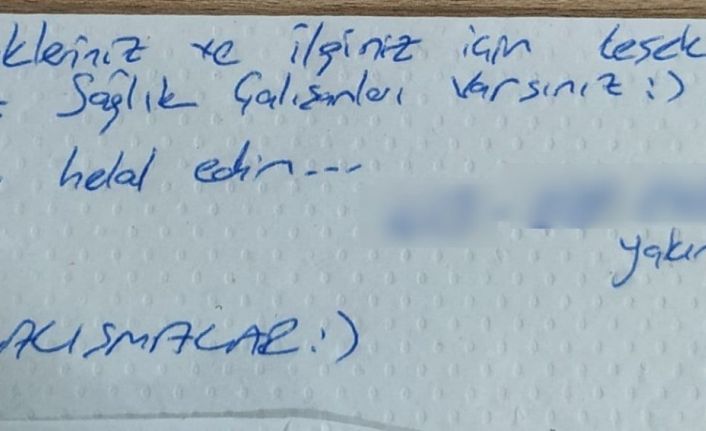 kleriniz ve ilginiz için teşek
Sağlık Çalışanları varsınız :)
helal edin...
yakı
ALIŞMALAR :)